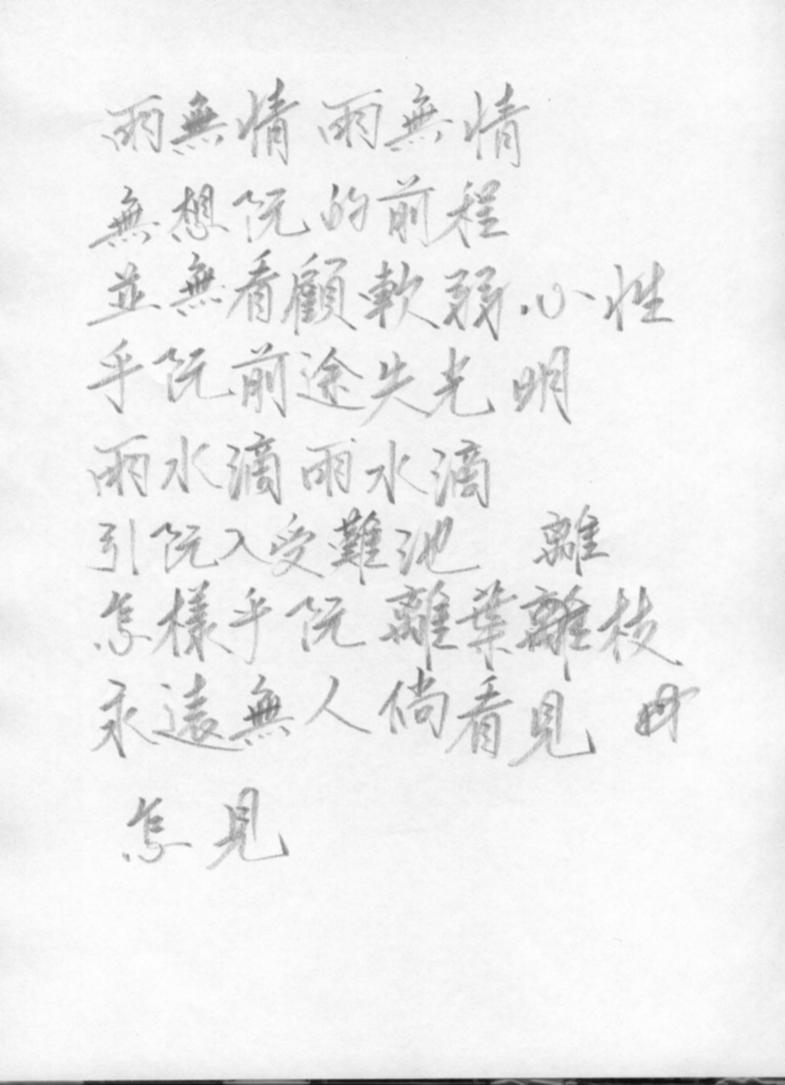 雨無情 雨無情
無想阮的前程
並無看顧軟弱心性
乎阮前途失光明
雨水滴 雨水滴
引阮入受難池 離
怎樣乎阮離葉離枝
永遠無人倘看見
怎見